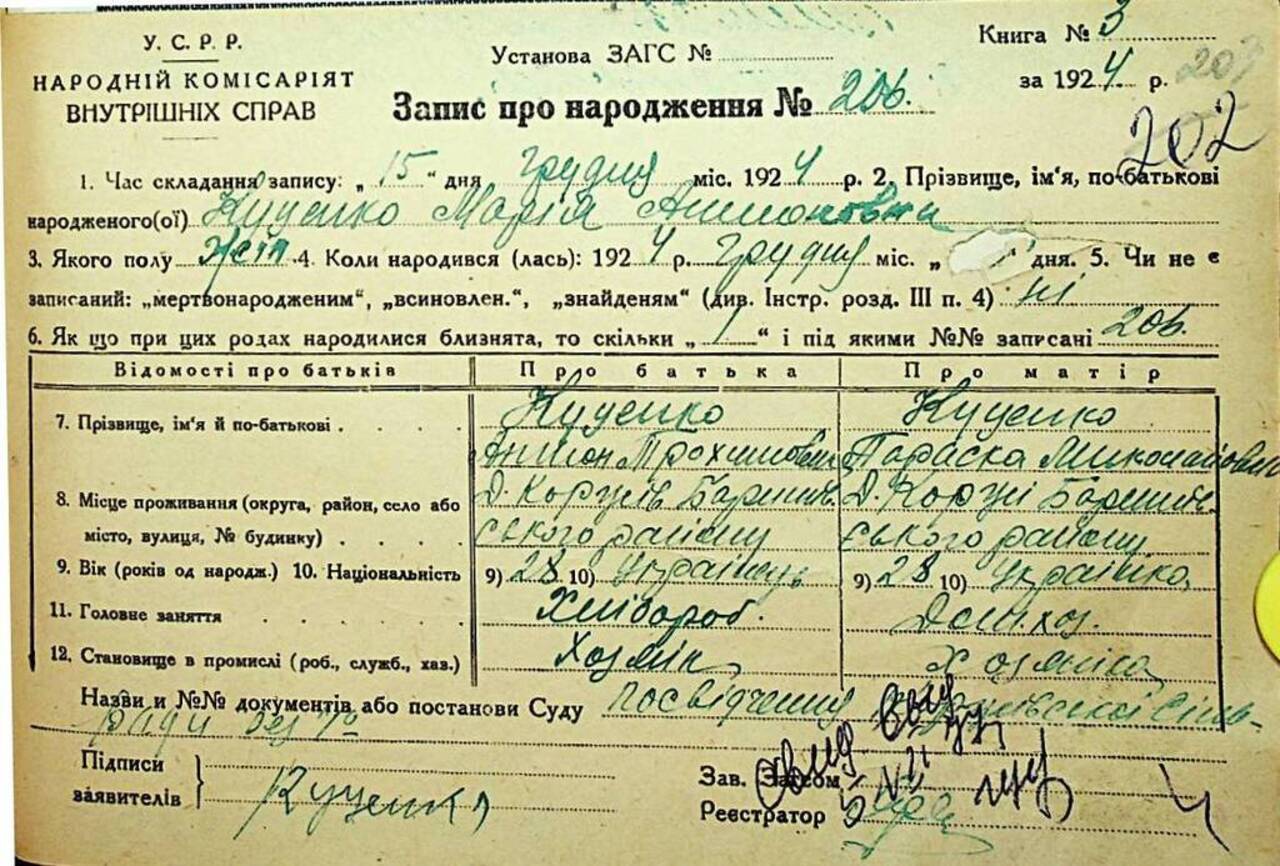 У. С. Р. Р.
НАРОДНІЙ КОМІСАРІЯТ
ВНУТРІШНІХ СПРАВ
Установа ЗАГС №
Запис про народження № 206.
Книга № 3
за 1924 р.
202
1. Час складання запису: „ 15 “ дня грудня міс. 1924 р. 2. Прізвище, ім'я, по-батькові
народженого(ої) Куценко Марія Антоновна
3. Якого полу жін 4. Коли народився (лась): 1924 р. грудня міс. „ дня. 5. Чи не є
записаний: „мертвонародженим“, „всиновлен.“, „знайденям“ (див. Інстр. розд. III п. 4) ні
6. Як що при цих родах народилися близнята, то скільки „ 1 “ і під якими №№ записані 206.
Відомості про батьків Про батька Про матір
7. Прізвище, ім'я й по-батькові . . . . Куценко Куценко
Антон Трохимович Параска Миколаївна
8. Місце проживання (округа, район, село або Баришів- Баришів-
місто, вулиця, № будинку) . . . . ського району ського району
9. Вік (років од народж.) 10. Національність 9) 28 10) Українець 9) 28 10) Українка
11. Головне заняття . . . . . . Хлібороб. Дом. хоз.
12. Становище в промислі (роб., служб., хаз.) Хозяїн Хозяйка
Назви и №№ документів або постанови Суду посвідчення Сіль-
ради без №
Підписи
заявителів
Куценко
Зав. Загсом
Реєстратор